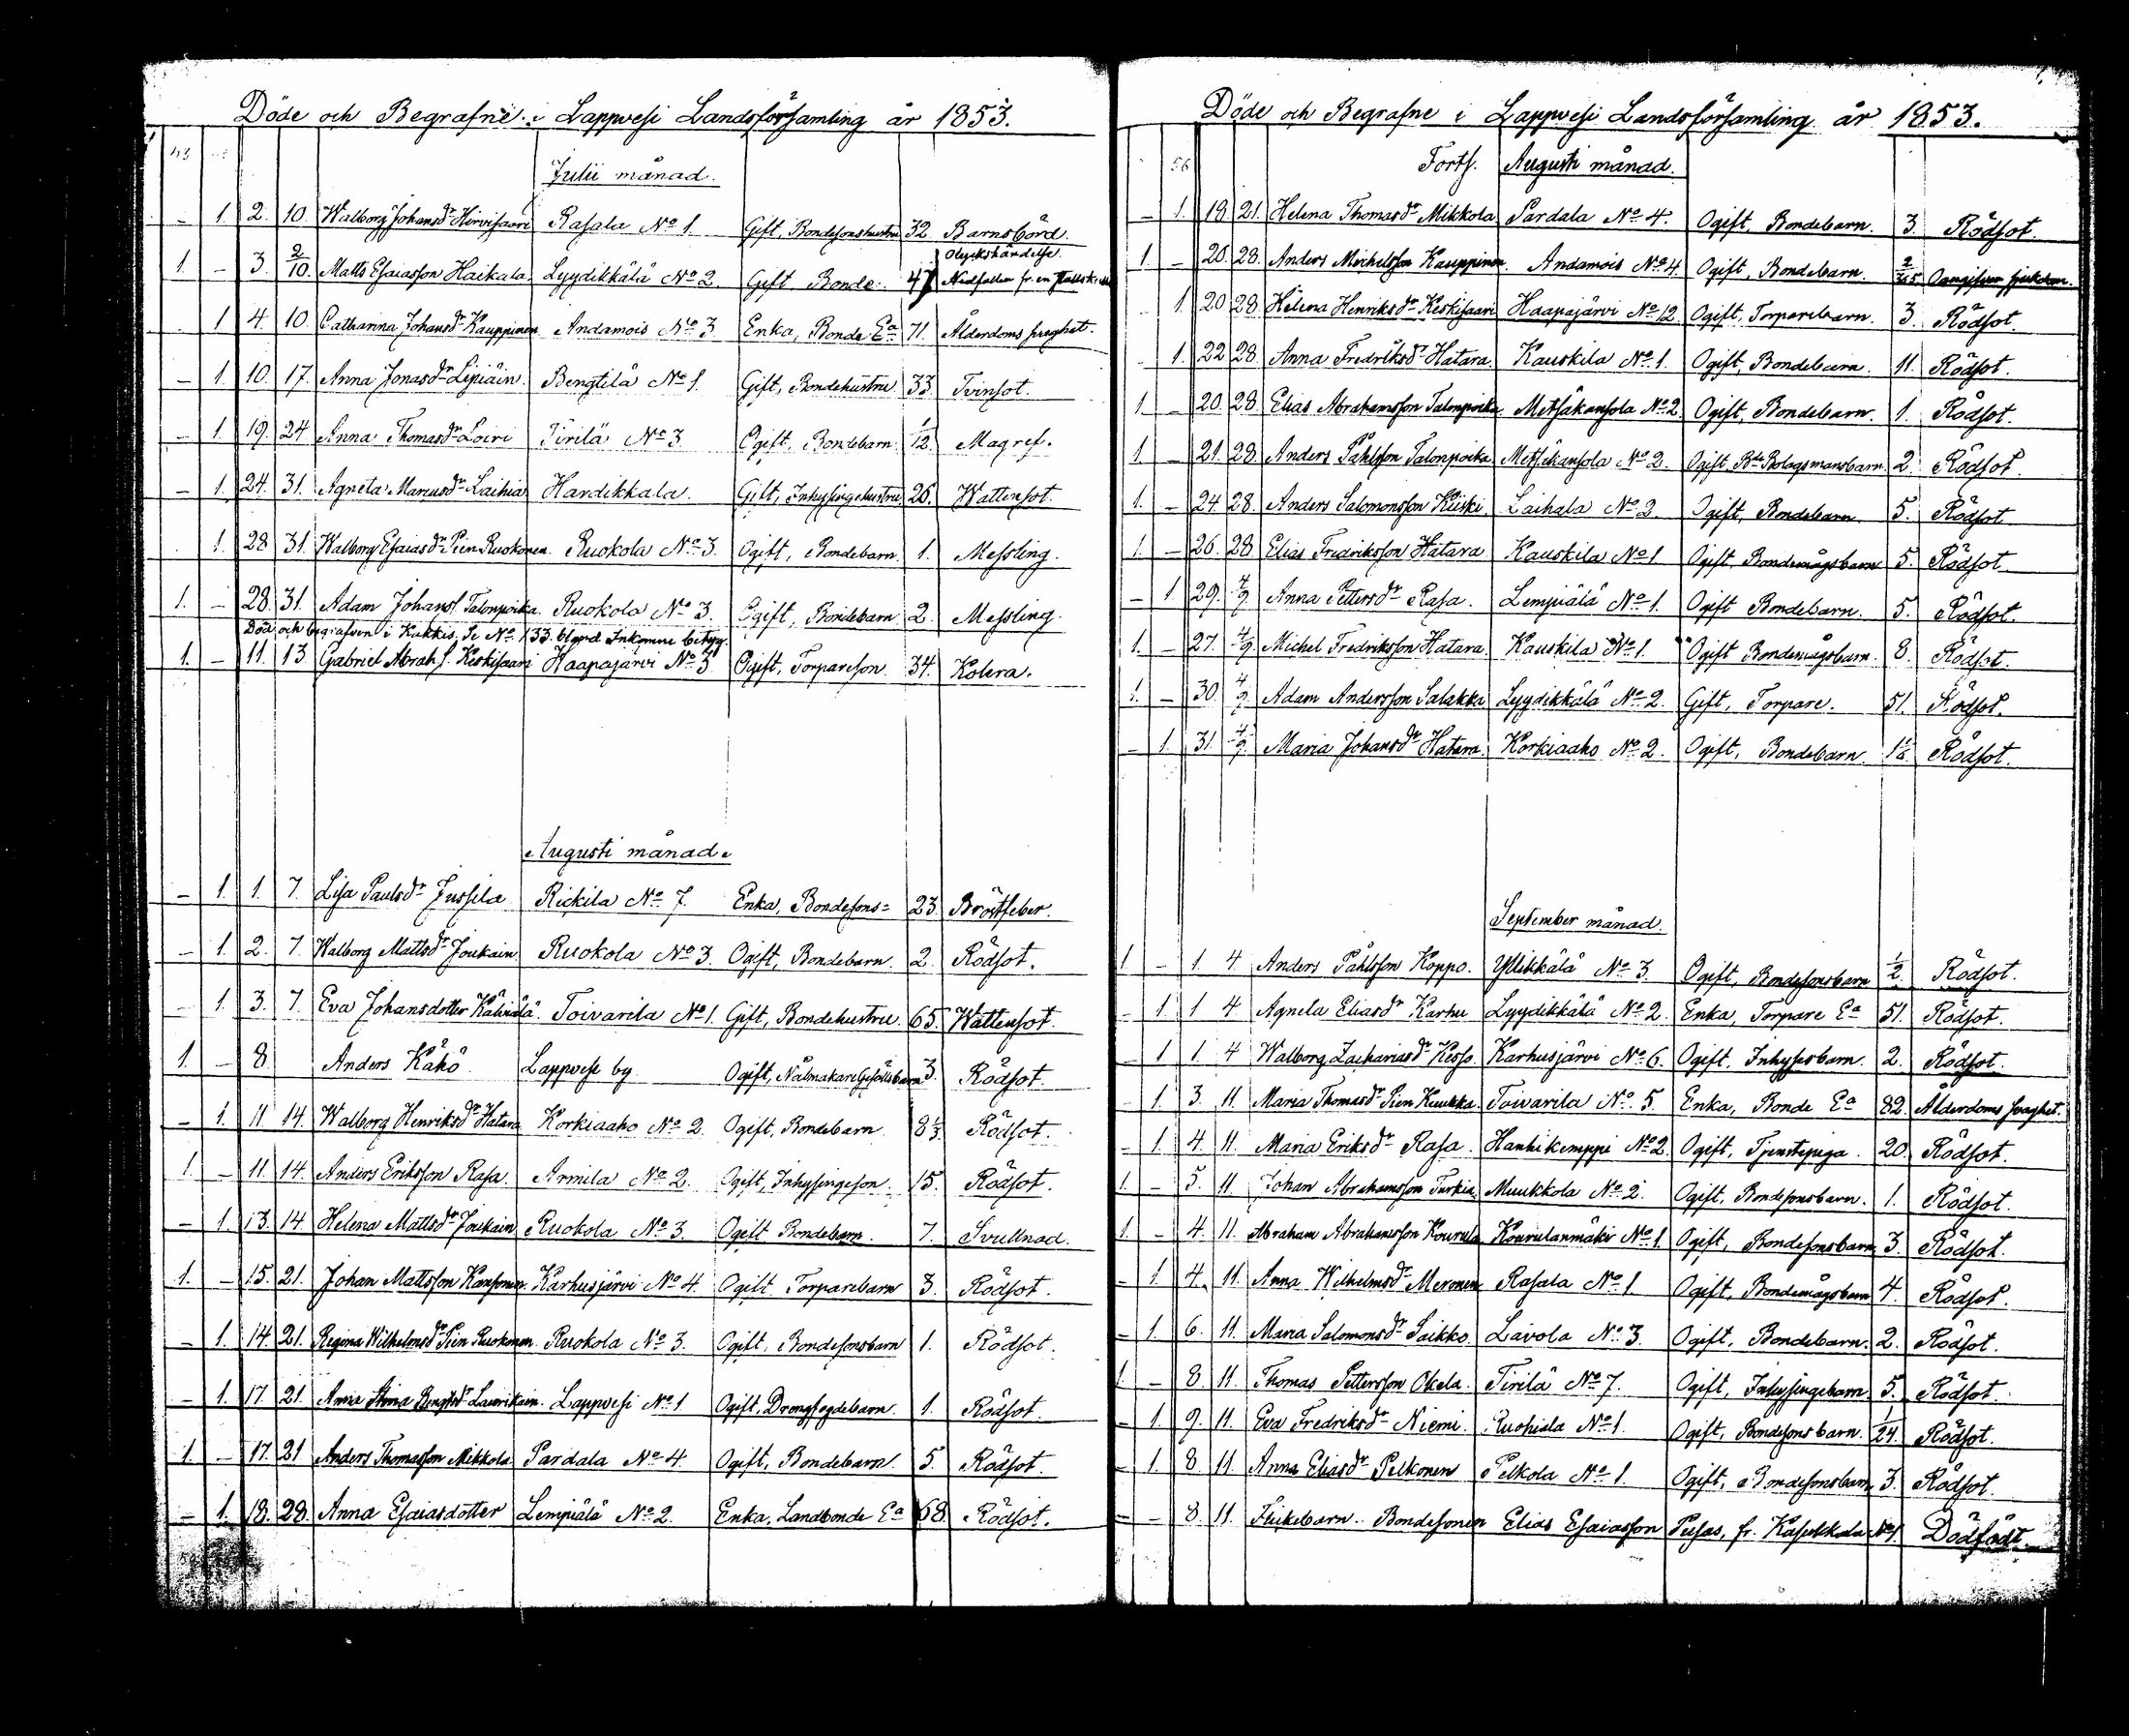 Döde och Begrafne i Lappvesi Landsförsamling år 1853.
Julii månad.
– 1. 2. 10. Walborg Johansdr Hirvisaari Rasala No 1. Gift, Bondesonshustru 32 Barnsbörd.
Olyckshändelse.
1. – 3. 2/10. Matts Esaiasson Haikala Lyydikkälä No 2. Gift Bonde 47 Nedfallen fr. en
1 4. 10. Catharina Johansdr Kauppinen Andamois No 3 Enka, Bonde Ea 71. Ålderdoms svaghet.
– 1. 10. 17. Anna Jonasdr Lipiäin Bengtilä No 1. Gift, Bondehustru 33 Tvinsot.
– 1. 19. 24 Anna Thomasdr Loiri Tirilä No 3 Ogift, Bondebarn 1/12. Magref.
– 1. 24. 31. Agneta Marcusdr Laihia Hardikkala. Gift, Inhysingehustru 26. Wattensot.
1. 28 31. Walborg Esaiasdr Pien Ruokonen Ruokola No 3. Ogift, Bondebarn 1. Messling.
1. – 28. 31. Adam Johanss Talonpoika Ruokola No 3. Ogift, Bondebarn 2. Messling.
Död och begrafven i Kakkis. Se No 133 bland Inkomne betyg.
1. – 11. 13 Gabriel Abrah.s. Keskisaari Haapajärvi No 3 Ogift, Torpareson. 34. Kolera.
Augusti månad.
– 1. 1. 7. Lisa Paulsdr Jussila Rickila No 7. Enka, Bondesons= 23. Bröstfeber.
– 1. 2. 7. Walborg Mattsdr Joukain Ruokola No 3. Ogift, Bondebarn. 2. Rödsot.
– 1. 3. 7. Eva Johansdotter Toivarila No 1. Gift, Bondehustru 65. Wattensot.
1. – 8. Anders Kähö Lappvesi by. Ogift, Nålmakare Gesällsbarn 3. Rödsot.
– 1. 11 14. Walborg Henriksdr Hatara Korkiaaho No 2. Ogift, Bondebarn 8 1/3. Rödsot.
1. – 11 14. Anders Eriksson Rasa. Armila No 2. Ogift, Inhysingeson. 15. Rödsot.
– 1. 13. 14. Helena Mattsdr Joukain Ruokola No 3. Ogift Bondebarn. 7. Svullnad.
1. – 15. 21. Johan Mattsson Karhusjärvi No 4. Ogift Torparebarn 3. Rödsot.
– 1. 14. 21. Regina Wilhelmsdr Pien Ruokonen. Ruokola No 3. Ogift, Bondesonsbarn 1. Rödsot.
– 1. 17. 21. Anna Stina Bengtsdr Laurikain. Lappvesi No 1 Ogift, Drengfogdebarn. 1. Rödsot.
1. – 17. 21 Anders Thomasson Mikkola Pardala No 4. Ogift, Bondebarn. 5. Rödsot.
– 1. 18. 28. Anna Esaiasdotter Lempiälä No 2. Enka, Landbonde Ea 68. Rödsot.
Döde och Begrafne i Lappvesi Landsförsamling år 1853.
56
Forts. Augusti månad.
– 1. 19. 21. Helena Thomasdr Mikkola Pardala No 4. Ogift, Bondebarn. 3. Rödsot.
1. – 26. 28. Anders Michelsson Kauppinen. Andamois No 4. Ogift, Bondebarn. Oangifven sjukdom.
1. 20 28. Helena Henriksdr Keskisaari Haapajärvi No 12. Ogift, Torparebarn. 3. Rödsot.
1. 22 28. Anna Fredriksdr Hatara. Kauskila No 1. Ogift, Bondebarn. 11. Rödsot.
1. – 20. 28. Elias Abrahamsson Talonpoika Metsäkansola No 2. Ogift, Bondebarn. 1. Rödsot.
1. – 21. 28. Anders Påhlsson Talonpoika Metsäkansola No 2. Ogift, Bde Bolagsmansbarn. 2. Rödsot.
1. – 24. 28. Anders Salomonsson Kiiski Laihala No 2. Ogift, Bondebarn. 5. Rödsot
1. – 26. 28. Elias Fredriksson Hatara Kauskila No 1 Ogift Bondemågsbarn 5. Rödsot.
– 1. 29. 4/9 Anna Pettersdr Rasa. Lempiälä No 1. Ogift Bondebarn. 5. Rödsot.
1. – 27. 4/9. Michel Fredriksson Hatara. Kauskila No 1. Ogift Bondemågsbarn. 8. Rödsot.
1. – 30. 4/9. Adam Andersson Salakka Lyydikkälä No 2. Gift, Torpare. 51. Rödsot.
– 1. 31. 4/9. Maria Johansdr Hatara. Korkiaaho No 2. Ogift, Bondebarn. 1 1/6. Rödsot.
September månad.
1 – 1. 4. Anders Påhlsson Koppo. Yllikkälä No 3. Ogift, Bondesonsbarn 1/2. Rödsot.
– 1 1 4 Agneta Eliasdr Karhu Lyydikkälä No 2. Enka, Torpare Ea 51. Rödsot.
– 1 1. 4 Walborg Zachariasdr Kesso. Karhusjärvi No 6. Ogift. Inhysesbarn. 2. Rödsot.
– 1. 3. 11. Maria Thomasdr Pien Kuukka. Toivarila No 5. Enka, Bonde Ea 82. Ålderdoms svaghet.
– 1. 4. 11. Maria Eriksdr Rasa. Hanhikemppi No 2. Ogift, Tjenstepiga. 20. Rödsot.
1. – 5. 11. Johan Abrahamsson Turkia. Muukkola No 2. Ogift, Bondesonsbarn. 1. Rödsot.
1. – 4. 11. Abraham Abrahamsson Kourula Kourulanmäki No 1. Ogift, Bondesonsbarn 3. Rödsot.
– 1. 4. 11. Anna Wilhelmsdr Meronen Rasala No 1 Ogift, Bondemågsbarn 4. Rödsot.
– 1. 6. 11. Maria Salomonsdr Saikko. Lavola No 3. Ogift, Bondebarn. 2. Rödsot.
1. – 8. 11. Thomas Pettersson Okela. Tirilä No 7. Ogift, Inhysingebarn 5. Rödsot.
– 1. 9. 11. Eva Fredriksdr Niemi. Ruohiala No 1. Ogift, Bondesonsbarn. 1/24. Rödsot.
– 1. 8. 11. Anna Eliasdr Pelkonen Pelkola No 1. Ogift, Bondesonsbarn 3. Rödsot.
– – 8. 11. Flickebarn. Bondesonen Elias Esaiasson Pusas, fr. No 1. Dödfödt.